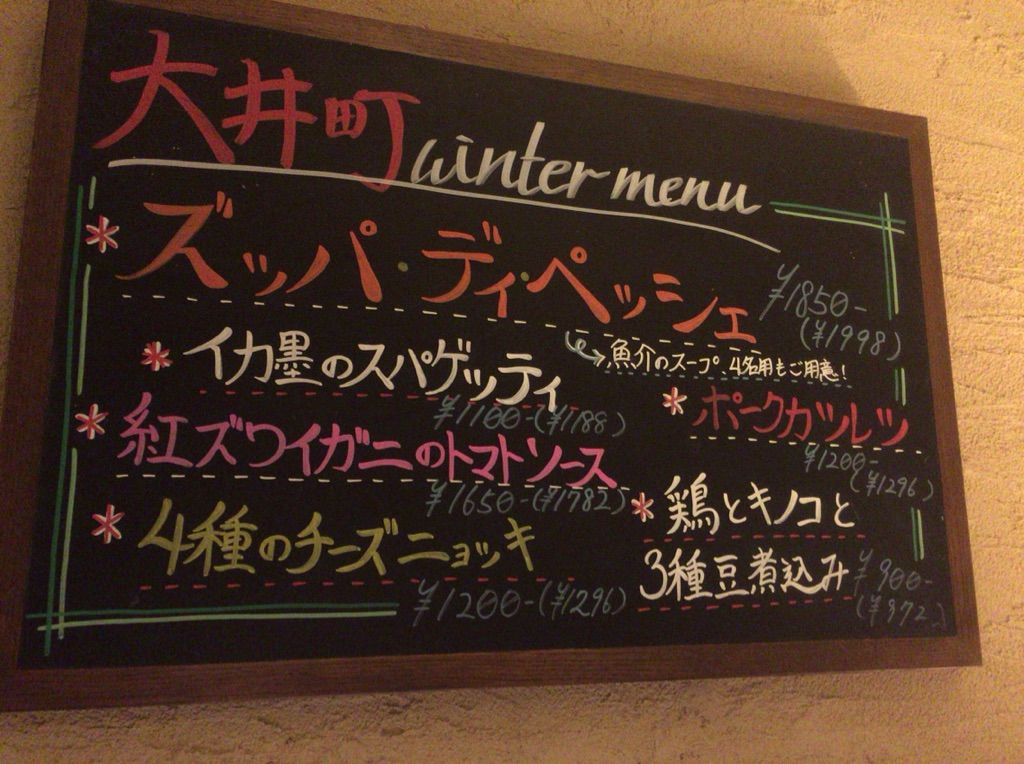 大井町 winter menu
* ズッパ・ディ・ペッシェ ¥1850-
(¥1998)
魚介のスープ、4名用もご用意!
* イカ墨のスパゲッティ
¥1100-(¥1188)
* 紅ズワイガニのトマトソース
¥1650-(¥1782)
* 4種のチーズニョッキ
¥1200-(¥1296)
* ポークカツレツ
¥1200-
(¥1296)
* 鶏とキノコと
3種豆煮込み ¥900-
(¥972)